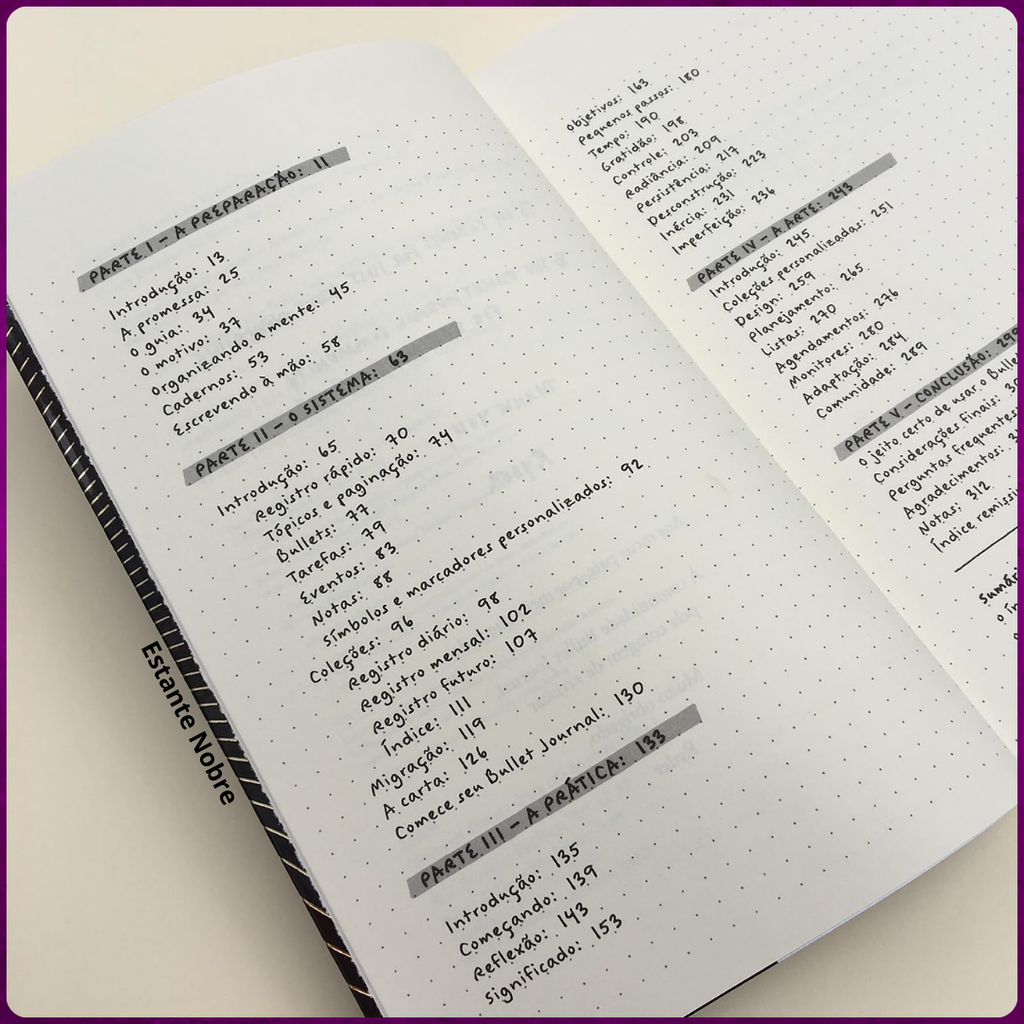 PARTE I - A PREPARAÇÃO: 11
Introdução: 13
A promessa: 25
O guia: 34
O motivo: 37
Organizando a mente: 45
Cadernos: 53
Escrevendo à mão: 58
PARTE II - O SISTEMA: 63
Introdução: 65
Registro rápido: 70
Tópicos e paginação: 74
Bullets: 77
Tarefas: 79
Eventos: 83
Notas: 88
Símbolos e marcadores personalizados: 92
Coleções: 96
Registro diário: 98
Registro mensal: 102
Registro futuro: 107
Índice: 111
Migração: 119
A carta: 126
Comece seu Bullet Journal: 130
PARTE III - A PRÁTICA: 133
Introdução: 135
Começando: 139
Reflexão: 143
Significado: 153
Objetivos: 163
Pequenos passos: 180
Tempo: 190
Gratidão: 198
Controle: 203
Radiância: 209
Persistência: 217
Desconstrução: 223
Inércia: 231
Imperfeição: 236
PARTE IV - A ARTE: 243
Introdução: 245
Coleções personalizadas: 251
Design: 259
Planejamento: 265
Listas: 270
Agendamentos: 276
Monitores: 280
Adaptação: 284
Comunidade: 289
PARTE V - CONCLUSÃO: 299
O jeito certo de usar o Bullet
Considerações finais: 30
Perguntas frequentes
Agradecimentos: 3
Notas: 312
Índice remissi
Sumári
O ín
Estante Nobre